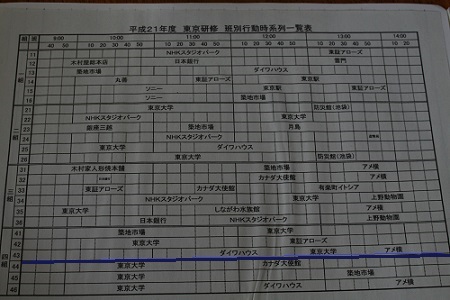 平成21年度 東京研修 班別行動時系列一覧表
組 班 9:00 10:00 11:00 12:00 13:00 14:00
40 50 10 20 30 40 50 10 20 30 40 50 10 20 30 40 50 10 20 30 40 50 10 20
11 NHKスタジオパーク 東証アローズ
12 木村屋總本店 日本銀行 雷門
13 築地市場 ダイワハウス
14 丸善 東証アローズ 東京駅
15 ソニー 東京駅
16 ソニー 築地市場
21 東京大学 防災館(池袋)
22 NHKスタジオパーク 東京大学
23 築地市場 月島
24 NHKスタジオパーク
25 東京大学 ダイワハウス
26 東京大学 防災館(池袋)
31 築地市場 アメ横
32 カナダ大使館
33 東証アローズ カナダ大使館 有楽町イトシア
34 NHKスタジオパーク 上野動物園
35 東京大学 しながわ水族館 アメ横
36 日本銀行 NHKスタジオパーク 上野動物園
41 築地市場
42 東京大学 東証アローズ
43 ダイワハウス 東京大学 アメ横
44 東京大学 カナダ大使館
45 東京大学 築地市場
46 ダイワハウス アメ横
二組
三組
四組